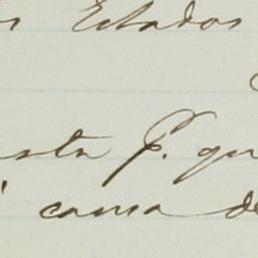 Estados
esta P. qu
causa de